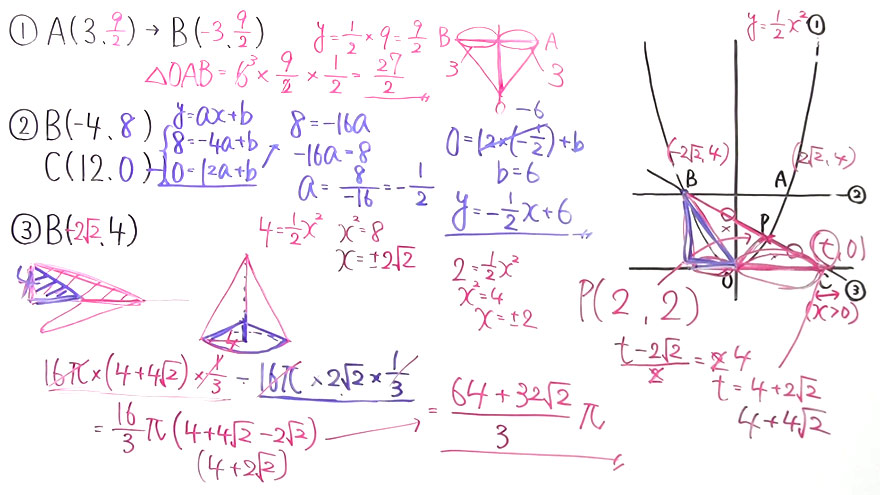 ① A(3, 9/2) → B(-3, 9/2)
y = 1/2 × 9 = 9/2
B A
3 3
O
△OAB = 6³ × 9/2 × 1/2 = 27/2
② B(-4, 8)
C(12, 0)
y = ax + b
8 = -4a + b
0 = 12a + b
8 = -16a
-16a = 8
a = 8/-16 = -1/2
-6
0 = 12 × (-1/2) + b
b = 6
y = -1/2x + 6
③ B(-2√2, 4)
4 = 1/2x²
x² = 8
x = ±2√2
2 = 1/2x²
x² = 4
x = ±2
4
4
16π × (4+4√2) × 1/3 - 16π × 2√2 × 1/3
= 16/3 π (4+4√2-2√2)
(4+2√2)
= 64+32√2/3 π
y = 1/2x² ①
(-2√2, 4) (2√2, 4)
B A ②
P
(t, 0)
O C ③
(x>0)
P(2, 2)
t-2√2/2 = 2 4
t = 4+2√2
4+4√2